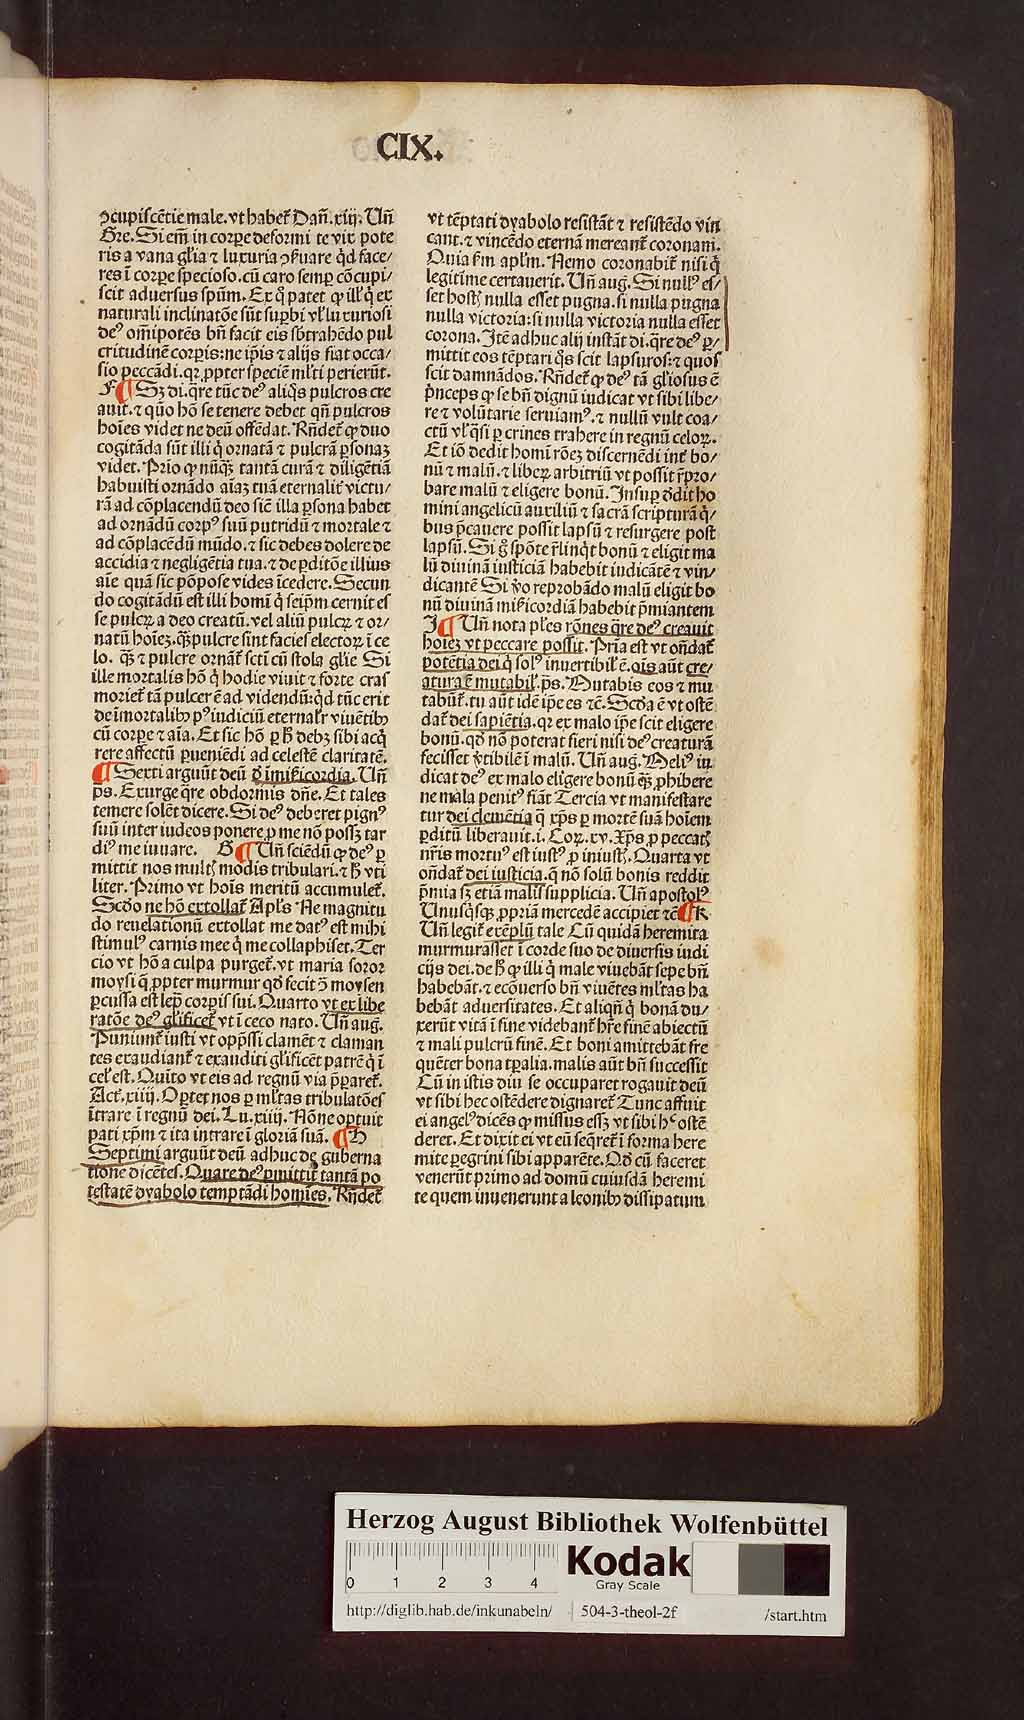 CIX.
ꝯcupiſcẽtie male. vt habet᷑ Dañ. xiij. Uñ
Gre. Si em̃ in corꝑe deformi te vix pote
ris a vana gl̃ia ⁊ luxuria ꝯẜuare q̈d face⸗
res ĩ corꝑe ſpecioſo. cũ caro ſemꝑ cõcupi⸗
ſcit aduerſus ſpũm. Ex q̊ patet ꝙ ill̕ q̇ ex
naturali inclinatõe ſũt ſuꝑbi vl̕ luxurioſi
deꝰ om̃ipotẽs bñ facit eis ſb̕trahẽdo pul
critudinẽ corꝑis: ne ip̃is ⁊ alijs fiat occa⸗
ſio peccãdi. qꝛ ꝓpter ſpeciẽ ml̕ti perierũt.
F ¶ Sꝫ di. q̃re tũc deꝰ aliq̊s pulcros cre
auit. ⁊ quõ hõ ſe tenere debet qñ pulcros
hoĩes videt ne deũ offẽdat. Rñdet᷑ ꝙ duo
cogitãda ſũt illi q̇ ornatã ⁊ pulcrã ꝑſonaꝫ
videt. Prĩo ꝙ nũq̃ꝫ tantã curã ⁊ diligẽtiã
habuiſti ornãdo aĩaꝫ tuã eternalit᷑ victu⸗
rã ad cõplacendũ deo ſic̃ illa ꝑſona habet
ad ornãdũ corpꝰ ſuũ putridũ ⁊ mortale ⁊
ad cõplacẽdũ mũdo. ⁊ ſic debes dolere de
accidia ⁊ negligẽtia tua. ⁊ de ꝑditõe illius
aĩe quã ſic põpoſe vides ĩcedere. Secun
do cogitãdũ eſt illi homĩ q̇ ſeip̃m cernit eſ
ſe pulcꝝ a deo creatũ. vel aliũ pulcꝝ ⁊ or⸗
natũ hoĩeꝫ. q̃ꝫ pulcre ſint facies electoꝝ ĩ ce
lo. q̃ꝫ ⁊ pulcre ornãt᷑ ſcti cũ ſtola gl̃ie Si
ille mortalis hõ q̇ hodie viuit ⁊ forte cras
moriet᷑ tã pulcer ẽ ad videndũ: q̈d tũc erit
de ĩmortalibꝫ pꝰ iudiciũ eternal̕r viuẽtibꝫ
cũ corꝑe ⁊ aĩa. Et ſic hõ ꝑ ħ debꝫ ſibi acq̇
rere affectũ ꝑueniẽdi ad celeſtẽ claritatẽ.
¶ Sexti arguũt deũ ď imĩſericordia. Uñ
ps. Exurge q̃re obdormis dñe. Et tales
temere ſolẽt dicere. Si deꝰ deberet pignꝰ
ſuũ inter iudeos ponere ꝓ me nõ poſſꝫ tar
diꝰ me iuuare. G ¶ Uñ ſciẽdũ ꝙ deꝰ ꝑ
mittit nos multꝭ modis tribulari. ⁊ ħ vti
liter. Primo vt hoĩs meritũ accumulet᷑.
Scďo ne hõ extollat᷑ Apl̕s Ne magnitu
do reuelationũ extollat me datꝰ eſt mihi
ſtimulꝰ carnis mee q̇ me collaphiſet. Ter
cio vt hõ a culpa purget᷑. vt maria ſoror
moyſi q̃ ꝓpter murmur qd̕ fecit ꝯ̃ moyſen
ꝑcuſſa eſt lep̃ corꝑis ſui. Quarto vt ex libe
ratõe deꝰ gl̕ificet᷑ vt ĩ ceco nato. Uñ aug.
Puniunt᷑ iuſti vt opp̃ſſi clamẽt ⁊ claman
tes exaudiant᷑ ⁊ exauditi gl̕ificẽt patrẽ q̇ ĩ
cel̕ eſt. Quĩto vt eis ad regnũ via p̃paret᷑.
Act᷑. xiiij. Oꝑtet nos ꝑ ml̕tas tribulatõeſ
ĩtrare ĩ regnũ dei. Lu. xxiiij. Nõne oꝑtuit
pati xp̃m ⁊ ita intrare ĩ gloriã ſuã. ¶ H
Septimi arguũt deũ adhuc de guberna
tione dicẽtes. Quare deꝰ ꝑmittit tantã po
teſtatẽ dyabolo temptãdi homĩes. Rñdet᷑
vt tẽptati dyabolo reſiſtãt ⁊ reſiſtẽdo vin
cant. ⁊ vincẽdo eternã mereant᷑ coronam.
Quia ẜm apl̕m. Nemo coronabit᷑ niſi q̇
legitime certauerit. Uñ aug. Si nullꝰ eſ⸗
ſet hoſtꝭ nulla eſſet pugna. ſi nulla pugna
nulla victoria: ſi nulla victoria nulla eſſet
corona. Itẽ adhuc alij inſtãt di. q̃re deꝰ ꝑ⸗
mittit eos tẽptari q̊s ſcit lapſuros: ⁊ quos
ſcit damnãdos. Rñdet᷑ ꝙ deꝰ tã gl̕ioſus ẽ
p̃nceps ꝙ ſe bñ dignũ iudicat vt ſibi libe⸗
re ⁊ volũtarie ſeruiamꝰ. ⁊ nullũ vult coa⸗
ctũ vl̕ q̃ſi ꝑ crines trahere in regnũ celoꝝ.
Et iõ dedit homĩ rõeꝫ diſcernẽdi int᷑ bo⸗
nũ ⁊ malũ. ⁊ libeꝝ arbitriũ vt poſſit r̃pro⸗
bare malũ ⁊ eligere bonũ. Inſuꝑ ďdit ho
mini angelicũ auxiliũ ⁊ ſacrã ſcripturã q̇⸗
bus p̃cauere poſſit lapſũ ⁊ reſurgere poſt
lapſũ. Si g̊ ſpõte r̃linq̇t bonũ ⁊ eligit ma
lũ diuinã iuſticiã habebit iudicãtẽ ⁊ vin⸗
dicantẽ Si v̊o reprobãdo malũ eligit bo
nũ diuinã miẜicordiã habebit p̃miantem
I ¶ Uñ nota pl̕es rõnes q̃re deꝰ creauit
hoĩeꝫ vt peccare poſſit. Prĩa eſt vt oñdat᷑
potẽtia dei q̇ ſolꝰ inuertibil̕ ẽ. oĩs aũt cre⸗
atura ẽ mutabil̕. ps. Mutabis eos ⁊ mu
tabũt᷑. tu aũt idẽ ip̃e es ⁊c̃. Scďa ẽ vt oſtẽ
dat᷑ dei ſapiẽtia. qꝛ ex malo ip̃e ſcit eligere
bonũ. qd̕ nõ poterat fieri niſi deꝰ creaturã
feciſſet v̕tibilẽ ĩ malũ. Uñ aug. Meliꝰ iu
dicat deꝰ ex malo eligere bonũ q̃ꝫ ꝓhibere
ne mala penitꝰ fiãt Tercia vt manifeſtare
tur dei clemẽtia q̃ xp̃s ꝑ mortẽ ſuã hoĩem
ꝑditũ liberauit. i. Coꝝ. xv. Xp̃s ꝓ peccatꝭ
nr̃is mortuꝰ eſt iuſtꝰ ꝓ iniuſtꝭ. Quarta vt
oñdat᷑ dei iuſticia. q̃ nõ ſolũ bonis reddit
p̃mia ſꝫ etiã malis ſupplicia. Uñ apoſtolꝰ
Unuſq̇ſqꝫ ꝓpriã mercedẽ accipiet ⁊c̃ ¶ K
Uñ legit᷑ exẽplũ tale Cũ quidã heremita
murmuraſſet ĩ corde ſuo de diuerſis iudi
cijs dei. de ħ ꝙ illi q̇ male viuebãt ſepe bñ
habebãt. ⁊ ecõuerſo bñ viuẽtes ml̕tas ha
bebãt aduerſitates. Et aliqñ q̇ bonã du⸗
xerũt vitã ĩ fine videbant᷑ hr̃e finẽ abiectũ
⁊ mali pulcrũ finẽ. Et boni amittebãt fre
quẽter bona tꝑalia. malis aũt bñ ſucceſſit
Cũ in iſtis diu ſe occuparet rogauit deũ
vt ſibi hec oſtẽdere dignaret᷑ Tunc affuit
ei angelꝰ dicẽs ꝙ miſſus eſſꝫ vt ſibi hͨ oſtẽ
deret. Et dixit ei vt eũ ſeq̃ret᷑ ĩ forma here
mite ꝑegrini ſibi apparẽte. Qd̕ cũ faceret
venerũt primo ad domũ cuiuſdã heremi
te quem inuenerunt a leonibꝫ diſſipatum
Herzog August Bibliothek Wolfenbüttel
0 1 2 3 4
Kodak
Gray Scale
http://diglib.hab.de/inkunabeln/ 504-3-theol-2f /start.htm